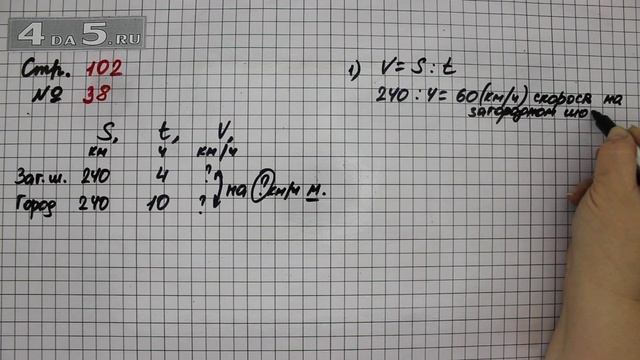 4DA5.RU
Стр. 102
№ 38
S, t, V,
км ч км/ч
Заг.ш. 240 4 ?
Город 240 10 ?
на ? км/ч м.
1) V = S : t
240 : 4 = 60 (км/ч) скорость на
загородном шо